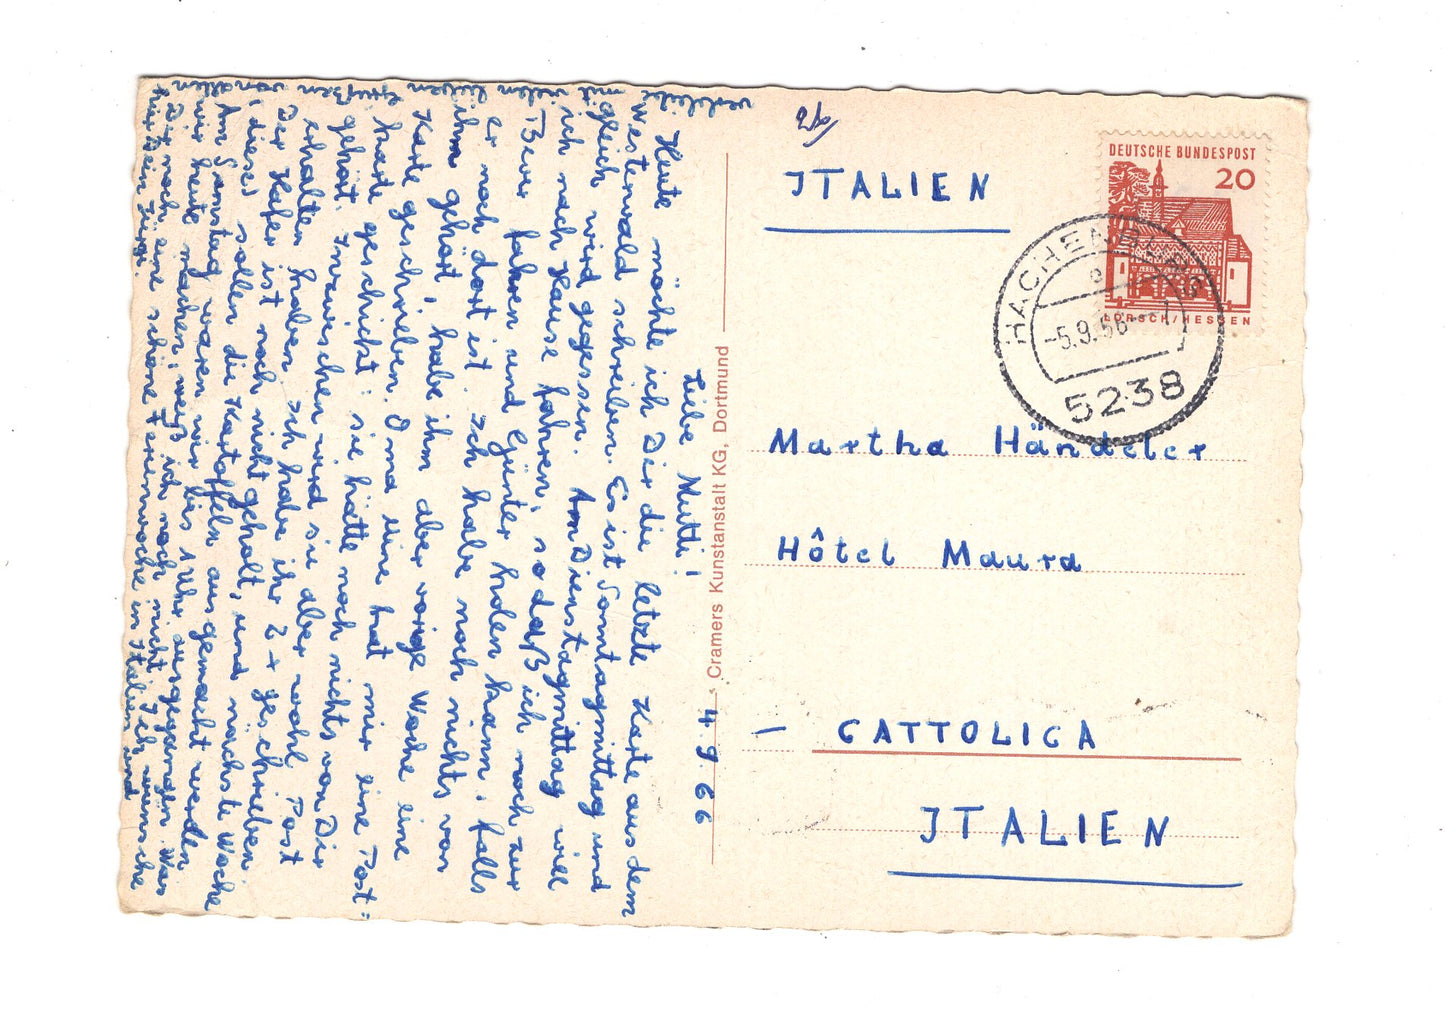 216
ITALIEN
DEUTSCHE BUNDESPOST
20
LORSCH/HESSEN
HACHENBURG
-5.9.66
5238
Martha Händeler
Hôtel Maura
- CATTOLICA
ITALIEN
Cramers Kunstanstalt KG, Dortmund
4.9.66
Liebe Mutti!
Heute möchte ich Dir die letzte Karte aus dem
Westerwald schreiben. Es ist Sonntagmittag und
gleich wird gegessen. Am Dienstagmittag will
ich nach Hause fahren, sodaß ich noch zur
Bever fahren und Günter holen kann, falls
er noch dort ist. Ich habe noch nichts von
ihm gehört, habe ihm aber vorige Woche eine
Karte geschrieben. Oma hat mir eine Post=
karte geschickt: sie hätte noch nichts von Dir
gehört. Inzwischen wird sie aber wohl Post
erhalten haben. Ich habe ihr 2x geschrieben.
Der Hafer ist noch nicht geholt, und nächste Woche
(diese) sollen die Kartoffeln ausgemacht werden.
Am Samstag waren wir bis 1 Uhr ausgegangen. Was
wir heute machen, weiß ich noch nicht. Ich wünsche
Dir noch eine schöne Ferienwoche in Italien und
verbleibe
mit vielen lieben Grüßen von allen
hier Dein Jürg.